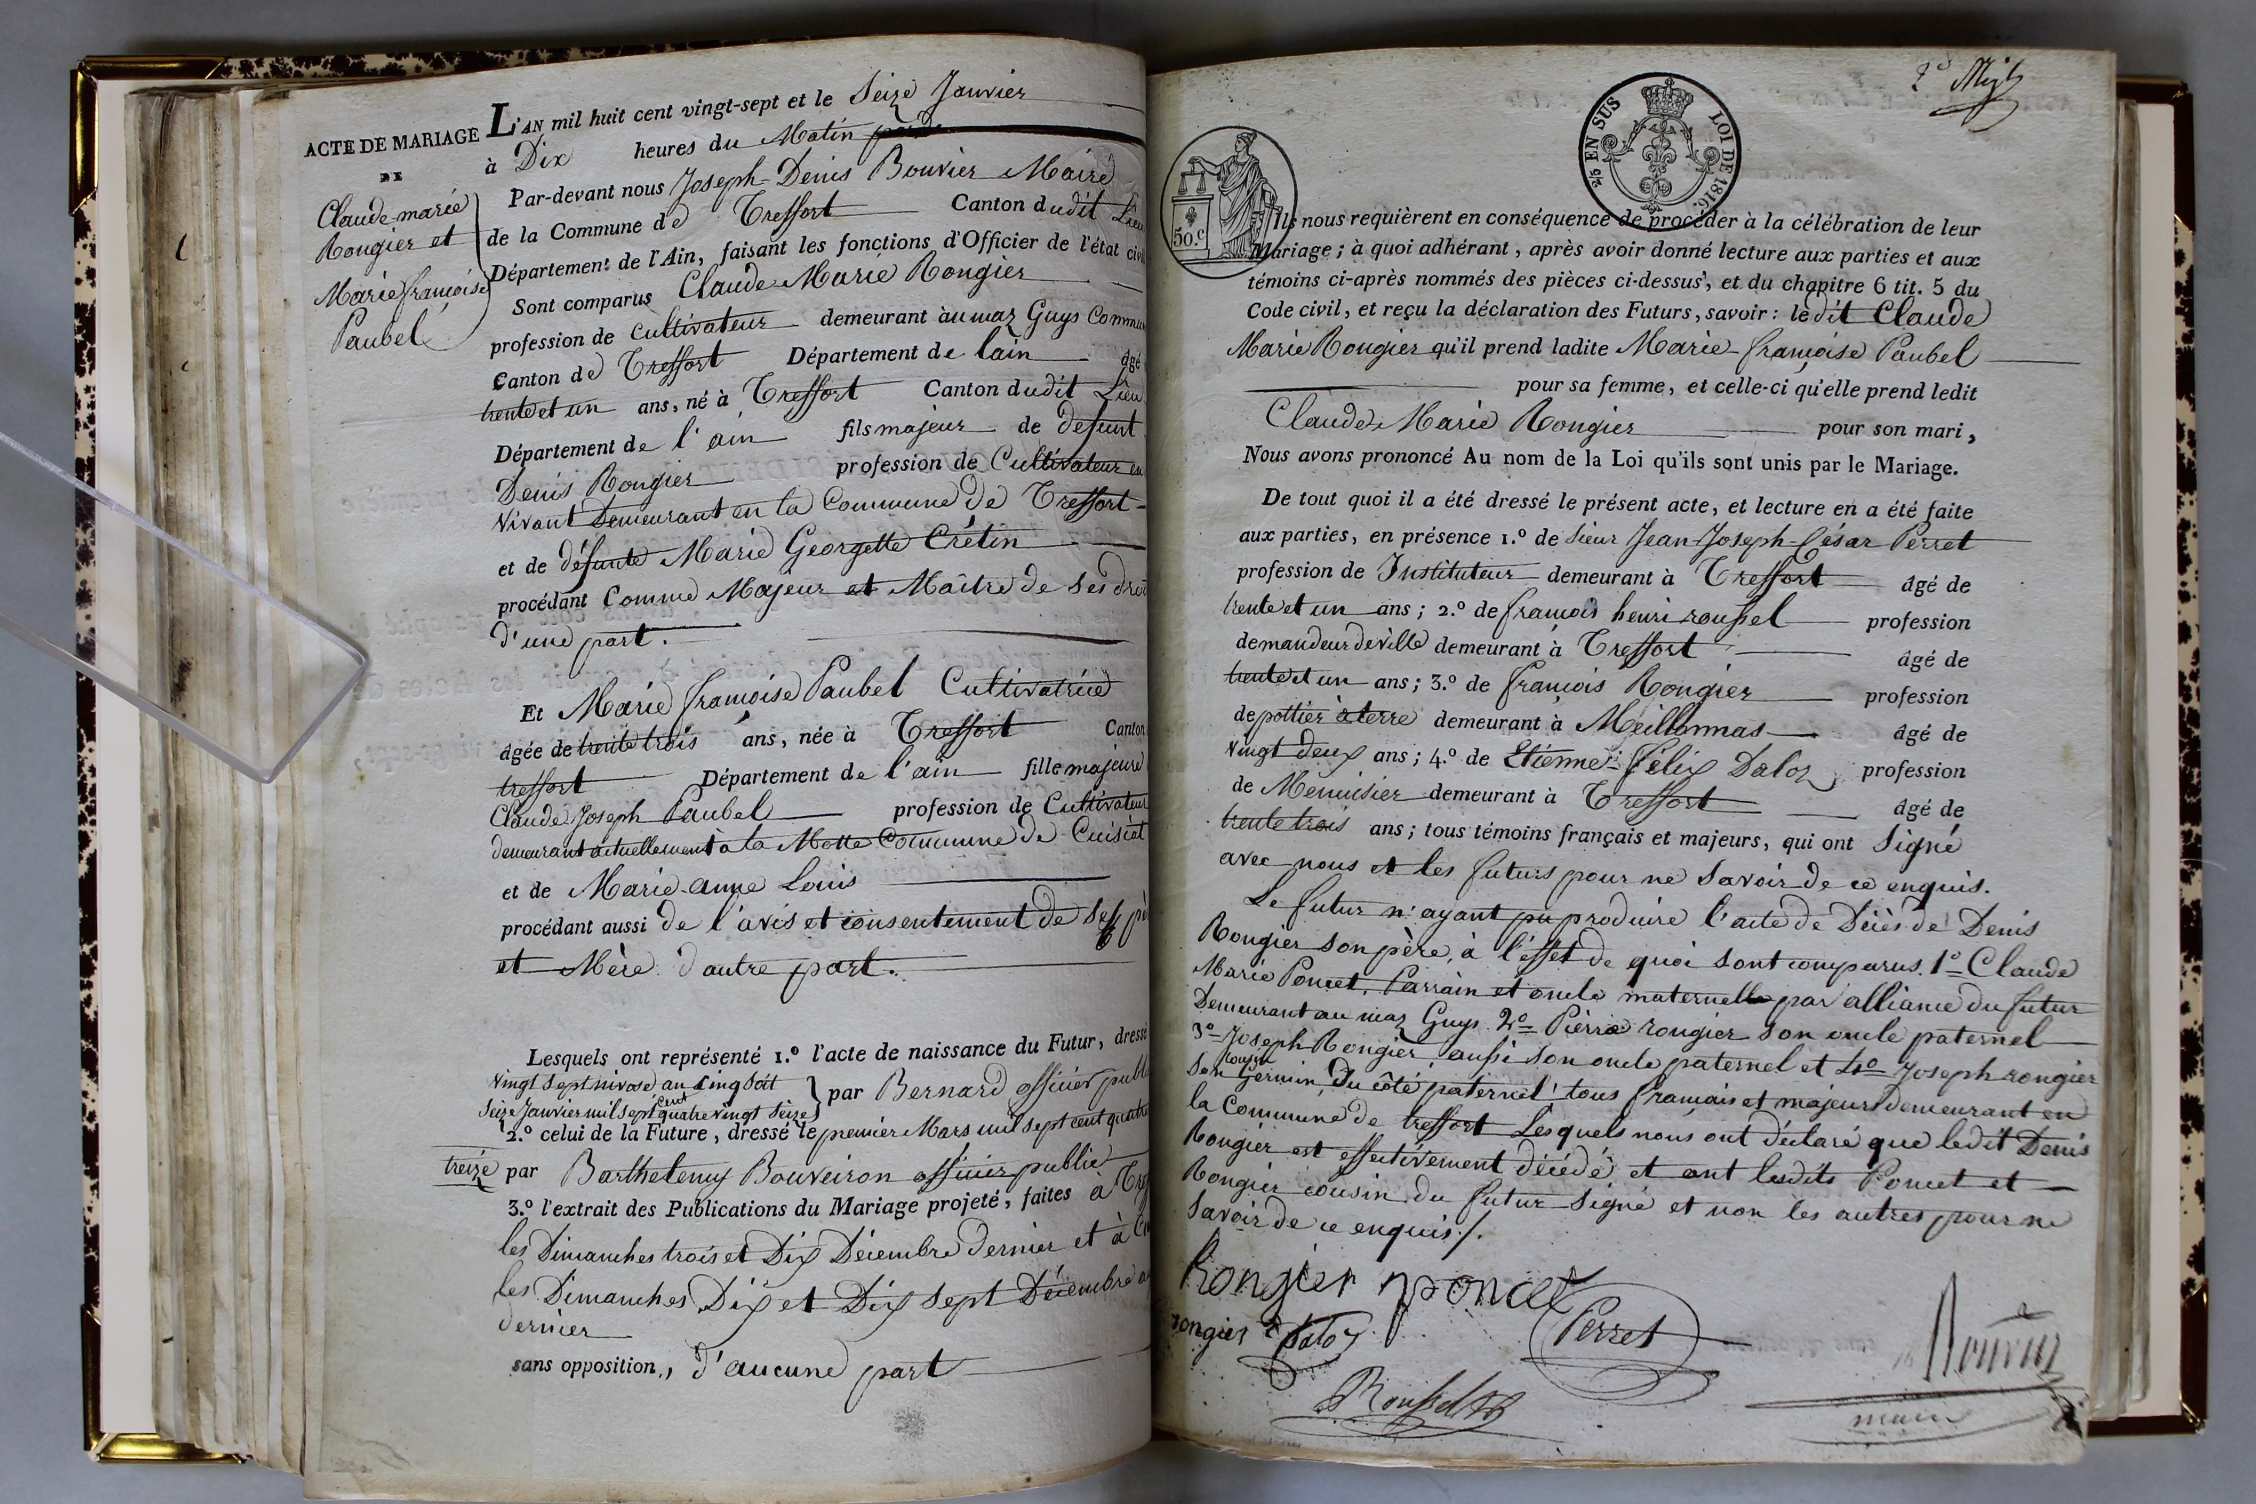 ACTE DE MARIAGE
DE
Claude-marie
Rongier et
Marie françoise
Paubel
L'AN mil huit cent vingt-sept et le Seize Janvier
à Dix heures du Matin
Par-devant nous Joseph-Denis Bouvier Maire
de la Commune de Treffort Canton dudit Lieu
Département de l'Ain, faisant les fonctions d'Officier de l'état civil
Sont comparus Claude-Marie Rongier
profession de Cultivateur demeurant au maz Guys Commun
Canton de Treffort Département de lain âgé
trente et un ans, né à Treffort Canton dudit Lieu
Département de l'ain fils majeur de defunt
Denis Rongier profession de Cultivateur en
Vivant Demeurant en la Commune de Treffort
et de défunte Marie Georgette Crétin
procédant Comme Majeur et Maître de ses droit
d'une part.
Et Marie françoise Paubel Cultivatrice
âgée de trente trois ans, née à Treffort Canton
treffort Département de l'ain fille majeure
Claude Joseph Paubel profession de Cultivateur
demeurant actuellement à la Motte Commune de Cuisiat
et de Marie-anne Louis
procédant aussi de l'avis et consentement de ses pè
et Mère d'autre part.
Lesquels ont représenté 1.º l'acte de naissance du Futur, dressé
vingt sept nivose an cinq soit
Seize Janvier mil sept cent quatre vingt Seize } par Bernard officier publ
2.º celui de la Future, dressé le premier Mars mil sept cent quatre
treize par Barthelemy Bouveiron officier public
3.º l'extrait des Publications du Mariage projeté, faites à Tref
les Dimanches trois et Dix Décembre dernier et à Cu
les Dimanches Dix et Dix sept Décembre a
dernier
sans opposition, d'aucune part
2.d Mil
2/5 EN SUS LOI DE 1816.
50.c
Ils nous requièrent en conséquence de procéder à la célébration de leur
Mariage; à quoi adhérant, après avoir donné lecture aux parties et aux
témoins ci-après nommés des pièces ci-dessus, et du chapitre 6 tit. 5 du
Code civil, et reçu la déclaration des Futurs, savoir: ledit Claude
Marie Rongier qu'il prend ladite Marie-françoise Paubel
pour sa femme, et celle-ci qu'elle prend ledit
Claude-Marie Rongier pour son mari,
Nous avons prononcé Au nom de la Loi qu'ils sont unis par le Mariage.
De tout quoi il a été dressé le présent acte, et lecture en a été faite
aux parties, en présence 1.º de Sieur Jean-Joseph-César Perret
profession de Instituteur demeurant à Treffort âgé de
trente et un ans; 2.º de françois henri roussel profession
de mandeur de ville demeurant à Treffort âgé de
trente et un ans; 3.º de françois Rongier profession
de pottier à terre demeurant à Meillonnas âgé de
vingt deux ans; 4.º de Etienne-Félix Daloz profession
de Menuisier demeurant à Treffort âgé de
trente trois ans; tous témoins français et majeurs, qui ont Signé
avec nous et les futurs pour ne savoir de ce enquis.
Le futur n'ayant pu produire l'acte de Décès de Denis
Rongier son père, à l'effet de quoi sont comparus 1º Claude
Marie Poncet, Parrain et oncle maternelle par alliance du futur
Demeurant au maz Guys 2º Pierre rongier son oncle paternel
3º Joseph Rongier aussi son oncle paternel et 4º Joseph rongier
son cousin Germin du côté paternel tous français et majeurs demeurant en
la Commune de treffort Lesquels nous ont déclaré que ledit Denis
Rongier est effectivement décédé et ont lesdits Poncet et
Rongier cousin du futur signé et non les autres pour ne
savoir de ce enquis ./.
Rongier poncet
rongier Daloz Perret
Bouvier
Roussel
maire